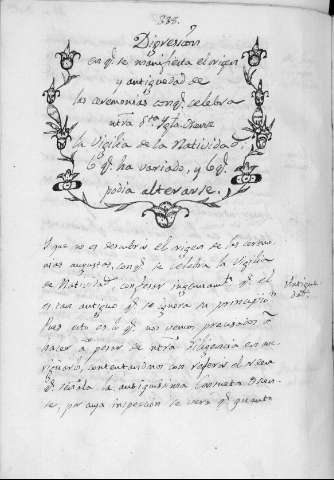 235.
Digresion
en q.e se manifiesta el origen
y antiguedad de
las ceremonias conq.e celebra
ntra S.ta Ygla
la Vigilia de la Natividad.
lo q.e ha variado, y lo q.e
podia alterarse.
Y que no es descubrir el origen de las ceremo-
nias augustas, conq.e se celebra la Vigilia
de Natividad, confesar ingenuam.te q.e el
es tan antiguo q.e se ignora su principio?
Pues esto es lo q.e nos vemos precisados à
hacer à pesar de ntrà diligencia en ave-
riguarlo, contentandonos con referir el
q.e la antiquisima Consueta
se, por cuya inspeccion se verà q.e quanto
Antigue-
dad.